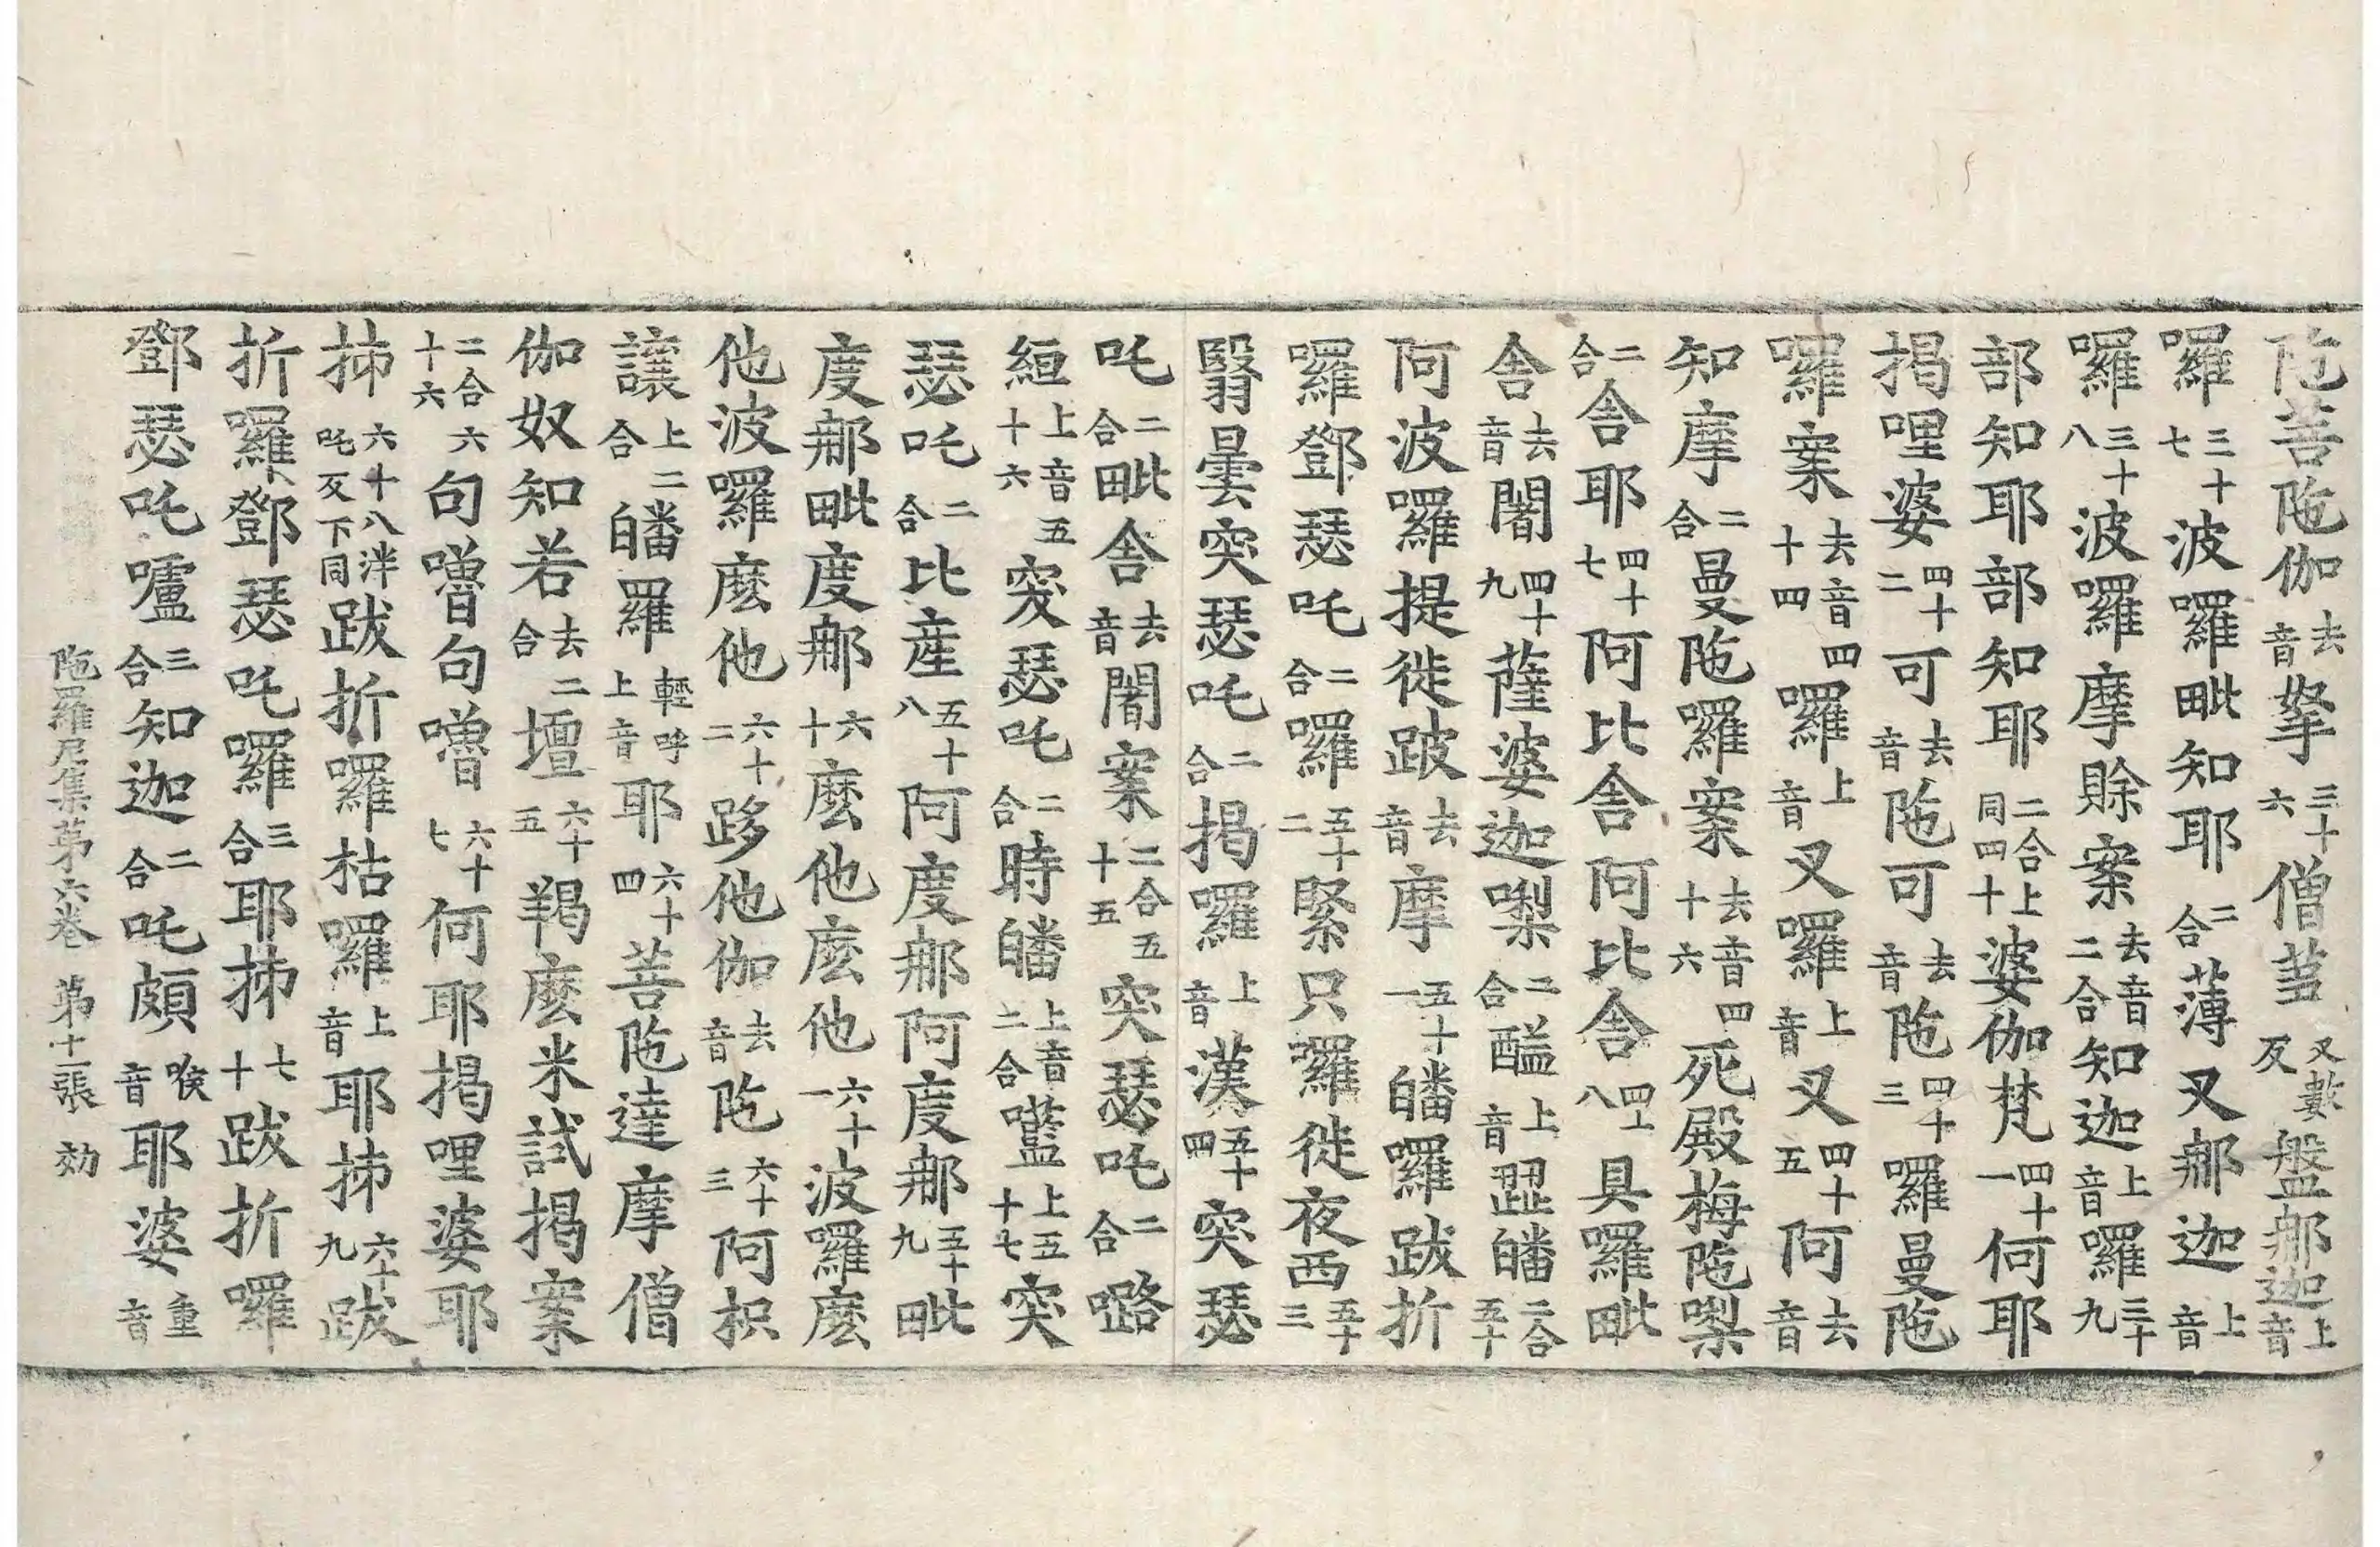 陁菩陁伽去音拏三十六僧䒳叉數反盤𨚗迦上音
囉三十七波囉毗知耶二合薄叉𨚗迦上音
囉三十八波囉摩賒案去音二合知迦上音囉三十九
部知耶部知耶二合上同四十婆伽梵四十一何耶
揭哩婆四十二可去音陁可去音陁四十三囉曼陁
囉案去音四十四囉上音叉囉上音叉四十五阿去音
知摩二合曼陁囉案去音四十六死殿梅陁㗚
二合舎耶四十七阿比舎阿比舎四十八具囉毗
舎去音闍四十九薩婆迦㗚二合醯上音𨤲皤二合五十
阿波囉提徙跛去音摩五十一皤囉跋折
囉鄧瑟吒二合囉五十二緊只囉徙夜西五十三
翳曇突瑟吒二合揭囉上音漢五十四突瑟
吒二合毗舎去音闍案二合五十五突瑟吒二合㗨
絙上音五十六突瑟吒二合時皤上音二合㘕上五十七突
瑟吒二合比産五十八阿度𨚗阿度𨚗五十九毗
度𨚗毗度𨚗六十麽他麽他六十一波囉麽
他波囉麽他六十二跢他伽去音陁六十三阿枳
讓上二合皤羅輕呼上音耶六十四菩陁達摩僧
伽奴知若去二合壇六十五羯麽米試揭案
二合六十六句嚕句嚕六十七何耶揭哩婆耶
抪六十八泮吒反下同跋折囉枯囉上音耶抪六十九跋
折囉鄧瑟吒囉三合耶抪七十跋折囉
鄧瑟吒嚧三合知迦二合吒頗喉音耶婆重音
陁羅尼集第六卷　第十一張　効